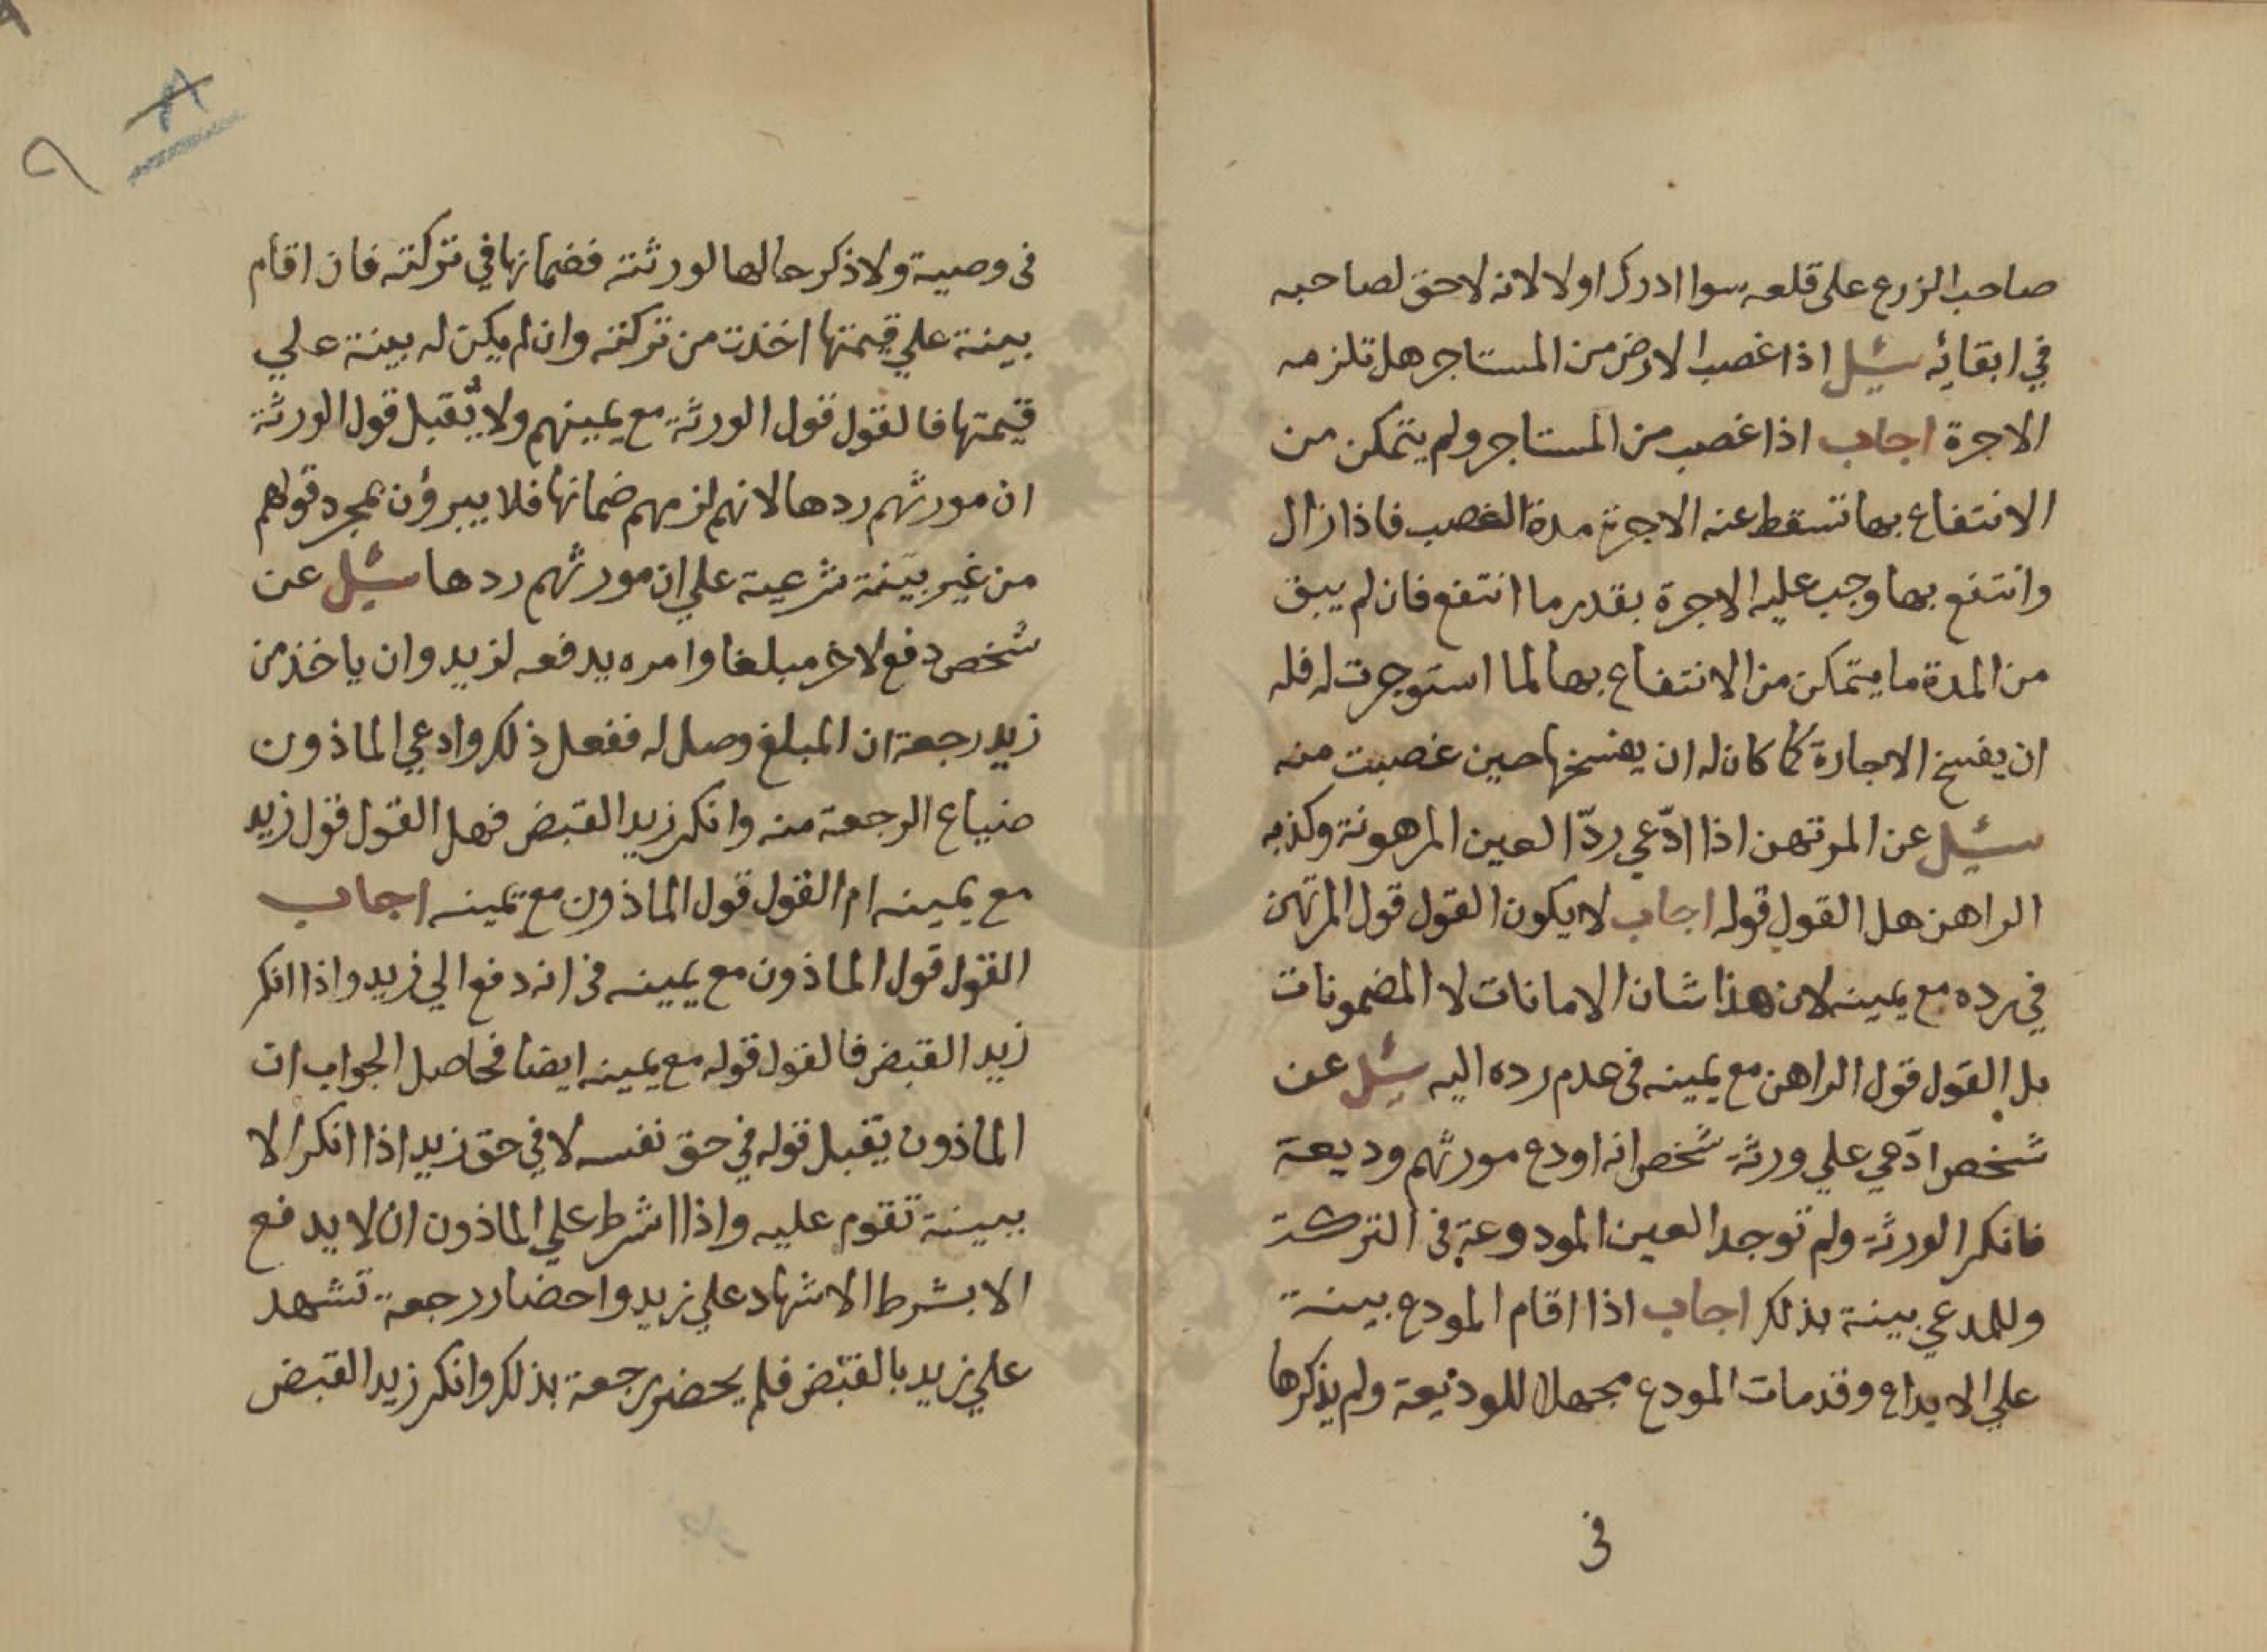 صاحب الزرع على قلعه سوا ادرك اولا لانه لاحق لصاحبه
في ابقائه سئل اذا غصب الارض من المستاجر هل تلزمه
الاجرة اجاب اذا غصب من المستاجر ولم يتمكن من
الانتفاع بها تسقط عنه الاجرة مدة الغصب فاذا زال
وانتفع بها وجب عليه الاجرة بقدر ما انتفع فان لم يبق
من المدة ما يتمكن من الانتفاع بها لما استوجرت له فله
ان يفسخ الاجارة كما كان له ان يفسخها حين غصبت منه
سئل عن المرتهن اذا ادّعي ردّ العين المرهونة وكذبه
الراهن هل القول قوله اجاب لا يكون القول قول المرتهن
في رده مع يمينه لان هذا شان الامانات لا المضمونات
بل القول قول الراهن مع يمينه في عدم رده اليه سئل عن
شخص ادّعي علي ورثة شخص انه اودع مورثهم وديعة
فانكر الورثة ولم توجد العين المودوعة في التركة
وللمدعي بينة بذلك اجاب اذا اقام المودع بينة
علي الايداع وقد مات المودع مجهلا للوديعة ولم يذكرها
في
٨
٩
في وصية ولا ذكر حالها لورثته فضمانها في تركته فان اقام
بينة علي قيمتها اخذت من تركته وان لم يكن له بينة علي
قيمتها فالقول قول الورثة مع يمينهم ولا يقبل قول الورثة
ان مورثهم ردها لانهم لزمهم ضمانها فلا يبرؤن بمجرد قولهم
من غير بينة شرعية علي ان مورثهم ردها سئل عن
شخص دفع لاخر مبلغا وامره يدفعه لزيد وان ياخذ من
زيد رجعة ان المبلغ وصل له ففعل ذلك وادعي الماذون
ضياع الرجعة منه وانكر زيد القبض فهل القول قول زيد
مع يمينه ام القول قول الماذون مع يمينه اجاب
القول قول الماذون مع يمينه في انه دفع الي زيد واذا انكر
زيد القبض فالقول قوله مع يمينه ايضا فحاصل الجواب ان
الماذون يقبل قوله في حق نفسه لا في حق زيد اذا انكر الا
ببينة تقوم عليه واذا اشرط علي الماذون ان لا يدفع
الا بشرط الاشهاد علي زيد واحضار رجعة تشهد
علي زيد بالقبض فلم يحضر رجعة بذلك وانكر زيد القبض